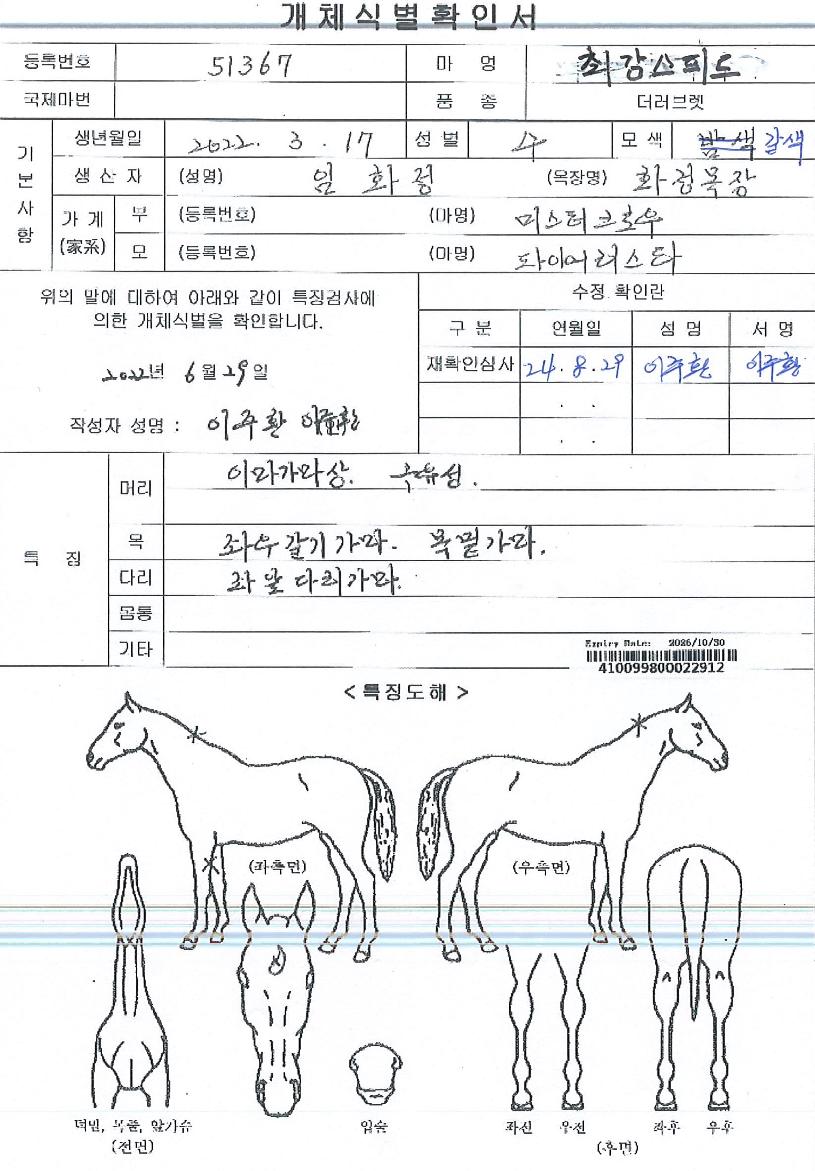 개체식별확인서
등록번호 51367 마 명 최강스피드
국제마번 품 종 더러브렛
기본사항
생년월일 2022. 3. 17 성 별 수 모 색 밤색 갈색
생 산 자 (성명) 임 화 정 (목장명) 화정목장
가 계 (家系)
부 (등록번호) (마명) 미스터크로우
모 (등록번호) (마명) 파이어러스타
위의 말에 대하여 아래와 같이 특징검사에
의한 개체식별을 확인합니다.
2022년 6월 29일
작성자 성명 : 이주환 이주환
수정 확인란
구 분 연월일 성 명 서 명
재확인심사 24. 8. 29 이주환 이주환
. .
. .
특 징
머리 이마가마상. 유성.
목 좌우갈기가마. 목밑가마.
다리 좌앞다리가마.
몸통
기타
Expiry Date: 2026/10/30
410099800022912
<특징도해>
(좌측면) (우측면)
턱밑, 목줄, 앞가슴 입술 좌전 우전 좌후 우후
(전면) (후면)